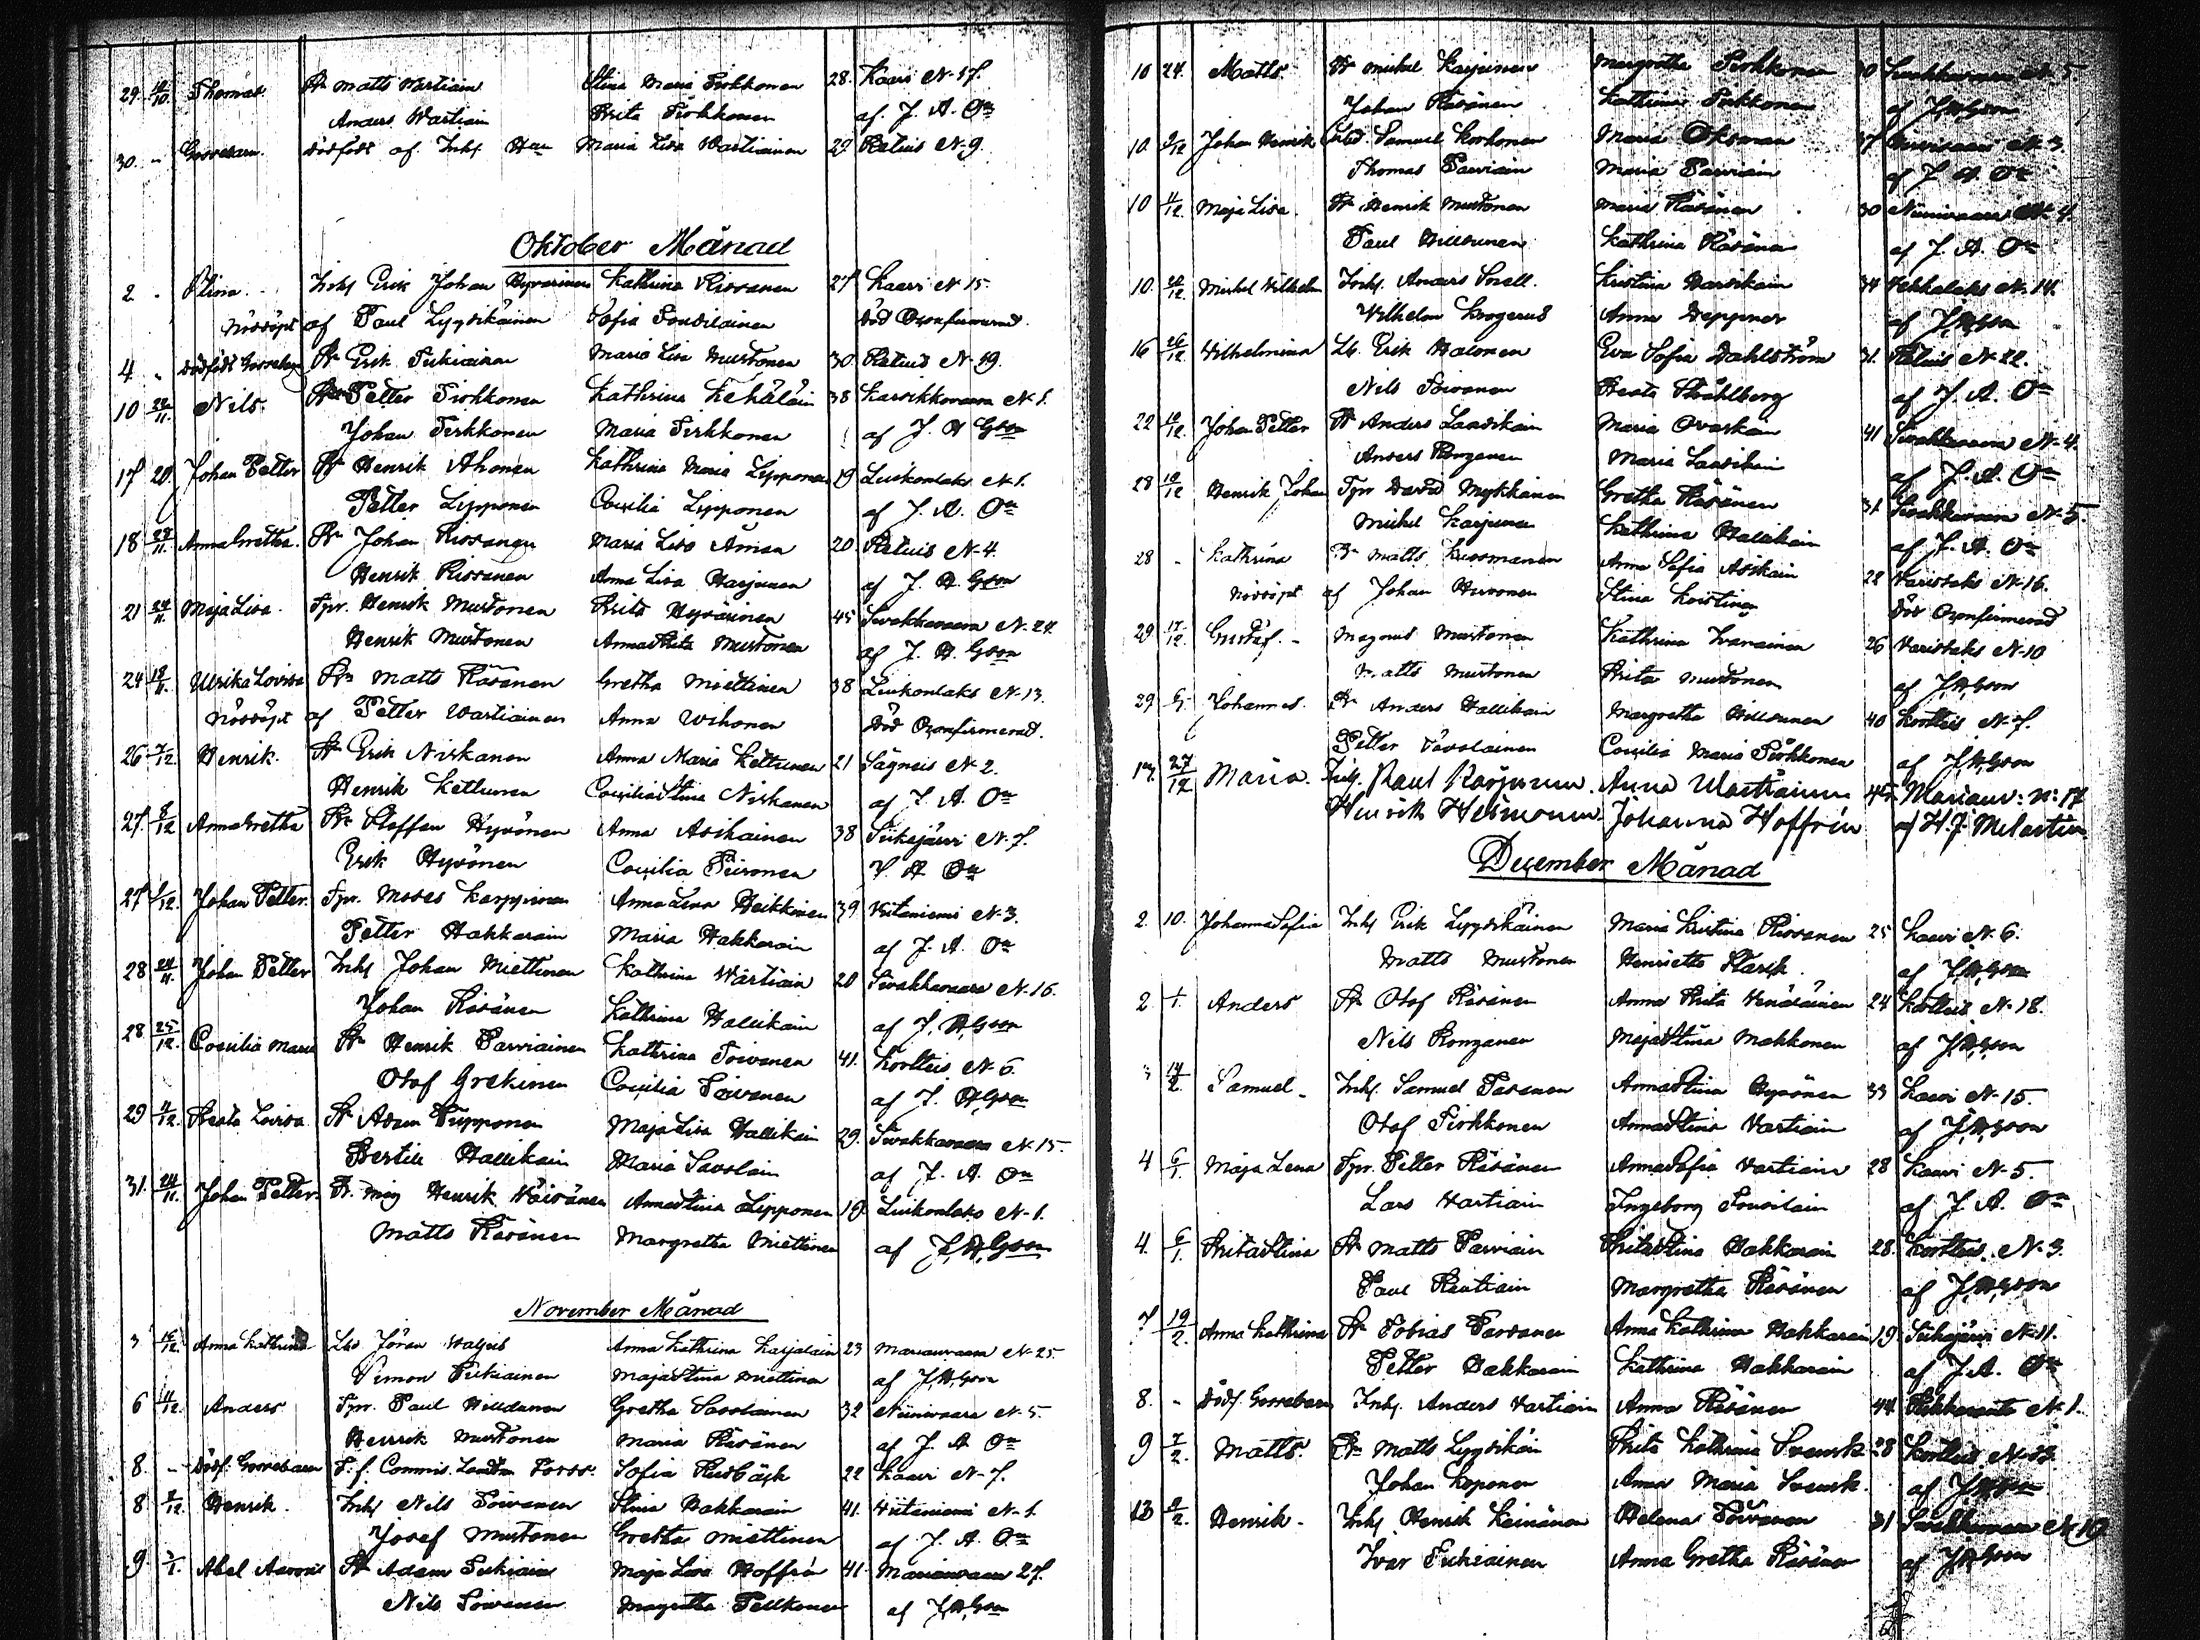 29. 12/10. Thomas Bn Matts Wartiain Stina Maria Pirhkonen 28. Kaavi N. 17.
Anders Wartiain Brita Pirhkonen af J. A. On
30. - Gossebarn. dödfödt af Inhs Maria Lisa Wartiainen 29 Retuis N. 9.
Oktober Månad
2 - Stina. Inhs Erik Johan Hyvärinen Kathrina Rissanen 27 Kaavi N. 15.
Nöddöpt af Paul Lyydikäinen Sofia Sousilainen Död Oconfirmerad.
4 - dödfödt Gossebarn Bn Erik Tukiainen Maria Lisa Mustonen 30. Retuis N. 19.
10 Nils. Petter Pirhkonen Kathrina 38 Karsikkovaara N. 1.
Johan Pirhkonen Maria Pirhkonen af J. H. Gson
17 20. Johan Petter Bn Henrik Ahonen Kathrina Maria Lipponen 19 Luikonlaks N. 1.
Petter Lipponen Cecilia Lipponen af J. A. On
18 27/11. Anna Gretha. Bn Johan Rissanen Maria Lisa Åman 20. Retuis N. 4.
Henrik Rissanen Anna Lisa Harjunen af J. H. Gson
21 24/11. Maja Lisa. Tpr. Henrik Mustonen Brita Hyvärinen 45 Sivakkavaara N. 24.
Henrik Mustonen Anna Brita Mustonen af J. H. Gson
24 Ulrika Lovisa Bn Matts Räsänen Gretha Miettinen 38 Luikonlaks N. 13.
Nöddöpt af Petter Wartiainen Anna Wihonen Död Oconfirmerad.
26 7/12. Henrik. Bn Erik Niskanen Anna Maria Kettunen 21 Sägneis N. 2.
Henrik Kettunen Cecilia Stina Niskanen af J. A. On
27. 8/12 Anna Gretha Bn Staffan Hyvönen Anna Asikainen 38 Siikajärvi N. 7.
Erik Hyvönen Cecilia Piironen J. A. On
27 1/12. Johan Petter. Tpr. Moses Karppinen Anna Lena Heikkinen 39 Viitaniemi N. 3.
Petter Hakkarain Maria Hakkarain af J. A. On
28 24/11. Johan Petter Inhs Johan Miettinen Kathrina Wartiain 20 Sivakkavaara N. 16.
Johan Räsänen Kathrina Hallikain af J. H. Gson
28 25/12. Cecilia Maria Bn Henrik Parviainen Kathrina Toivanen 41. Kortteis N. 6.
Olof Grekinen Cecilia Toivanen af J. H. Gson
29 4/12. Beata Lovisa Bn Adam Tupponen Maja Lisa Hallikain 29. Sivakkavaara N. 15.
Bertill Hallikain Maria Savolain af J. A. On
31. 24/11. Johan Petter. Bn måg Henrik Väisänen Anna Stina Lipponen 19. Luikonlaks N. 1.
Matts Räsänen Margretha Miettinen af J. H. Gson
November Månad
3 Anna Kathrina Jöran Anna Kathrina Karjalain 23 Marianvaara N. 25
Simon Tukiainen Maja Stina Miettinen af J. H. Gson
6 11/12. Anders Tpr. Paul Hilldunen Gretha Savolainen 32 Niinivaara N. 5.
Henrik Mustonen Maria Räsänen af J. A. On
8. - Dödf. Gossebarn Sofia 22 Kaavi N. 7.
8 Henrik. Inhs Nils Toivanen Stina Hakkarain 41. Viitaniemi N. 1.
Josef Mustonen Gretha Miettinen af J. A. On
9 Abel Bn Adam Tukiain Maja Lisa Hoffrén 41. Marianvaara 27.
Nils Toivanen Margretha Pellkonen af J. H. Gson
10 24. Matts Bn Michel Karjunen Margretha Pirhkonen Sivakkavaara N. 5.
Johan Räsänen Kathrina af J. H. Gson
10 9/12 Johan Henrik Samuel Korhonen Maria Oksman 37 N. 3.
Thomas Parviain Maria Parviain af J. A. On
10 11/12. Maja Lisa. Bn Henrik Mustonen Maria Räsänen 30 Niinivaara N. 4.
Paul Hilldunen Kathrina Räsänen af J. A. On
10. Michel Vilhelm Inhs. Anders Snell. Kristina 34 N. 14.
Vilhelm Krogerus Anna af J. H. Gson
16 26/12. Vilhelmina Erik Halonen Eva Sofia Dahlström 31. Retuis N. 22.
Nils Toivanen Beata Ståhlberg af J. A. On
22 Johan Petter Bn Anders Laasikain Maria Ovaskain 41 Sivakkavaara N. 4.
Anders Ronganen Maria Laasikain af J. A. On
28 Henrik Johan Tpr David Mykkänen Gretha Räsänen 31 Sivakkavaara N. 5.
Michel Karjunen Kathrina Hallikain af J. A. On
28 - Kathrina Bn Matts Kuosmanen Anna Sofia Asikain 22 Varislaks N. 16.
Nöddöpt af Johan Stina Koistinen Död Oconfirmerad
29 17/12. Gustaf. - Magnus Mustonen Kathrina Ivanainen 26 Varislaks N. 10
Matts Mustonen Brita Mustonen af J. H. Gson
29 Johannes. Bn Anders Hallikain Margretha Hilldunen 40 Kortteis N. 7.
Petter Savolainen Cecilia Maria Pirhkonen af J. H. Gson
27/12 Maria. Inhs. Paul Karjunen. Anna Wartiainen 45. Marianv: N: 17
Henrik Heimonen. Johanna Hoffrén af H. J. Melartin
December Månad
2. 10. Johanna Sofia Inhs Erik Lyydikäinen Maria Kristina Rissanen 25 Kaavi N. 6.
Matts Mustonen Henrietta Starck. af J. H. Gson
2. 1/1. Anders Bn Olof Räsänen Anna Brita Venäläinen 24 Kortteis N. 18.
Nils Ronganen Maja Stina Makkonen af J. H. Gson
3 14/2. Samuel - Inhs. Samuel Tavanen Anna Stina Hyvönen 33 Kaavi N. 15.
Olof Pirhkonen Anna Stina Vartiain af J. H. Gson
4 6/1. Maja Lena Tpr. Petter Räsänen Anna Sofia Vartiain 28 Kaavi N. 5.
Lars Vartiain Ingeborg Sousilain af J. A. On
4. 6/1. Brita Stina Bn Matts Parviain Brita Stina Hakkarain 28. Kortteis. N. 3.
Paul Rautiain Margretha Räsänen af J. H. Gson
7 19/2. Anna Kathrina Bn Tobias Tavanen Anna Kathrina Hakkarain 19 Siikajärvi N. 11.
Petter Hakkarain Kathrina Hakkarain af J. A. On
8. - Dödf. Gossebarn Inhs. Anders Vartiain Anna Räsänen 44 N. 1.
9 7/2. Matts Bn Matts Lyydikäin Brita Kathrina Svensk 28 Kortteis N. 13.
Johan Koponen Anna Maria Svensk. af J. H. Gson
13 9/2. Henrik - Inhs Henrik Keinänen Helena Toivanen 31 Sivakkavaara N. 19
Ivar Tukiainen Anna Gretha Räsänen af J. H. Gson